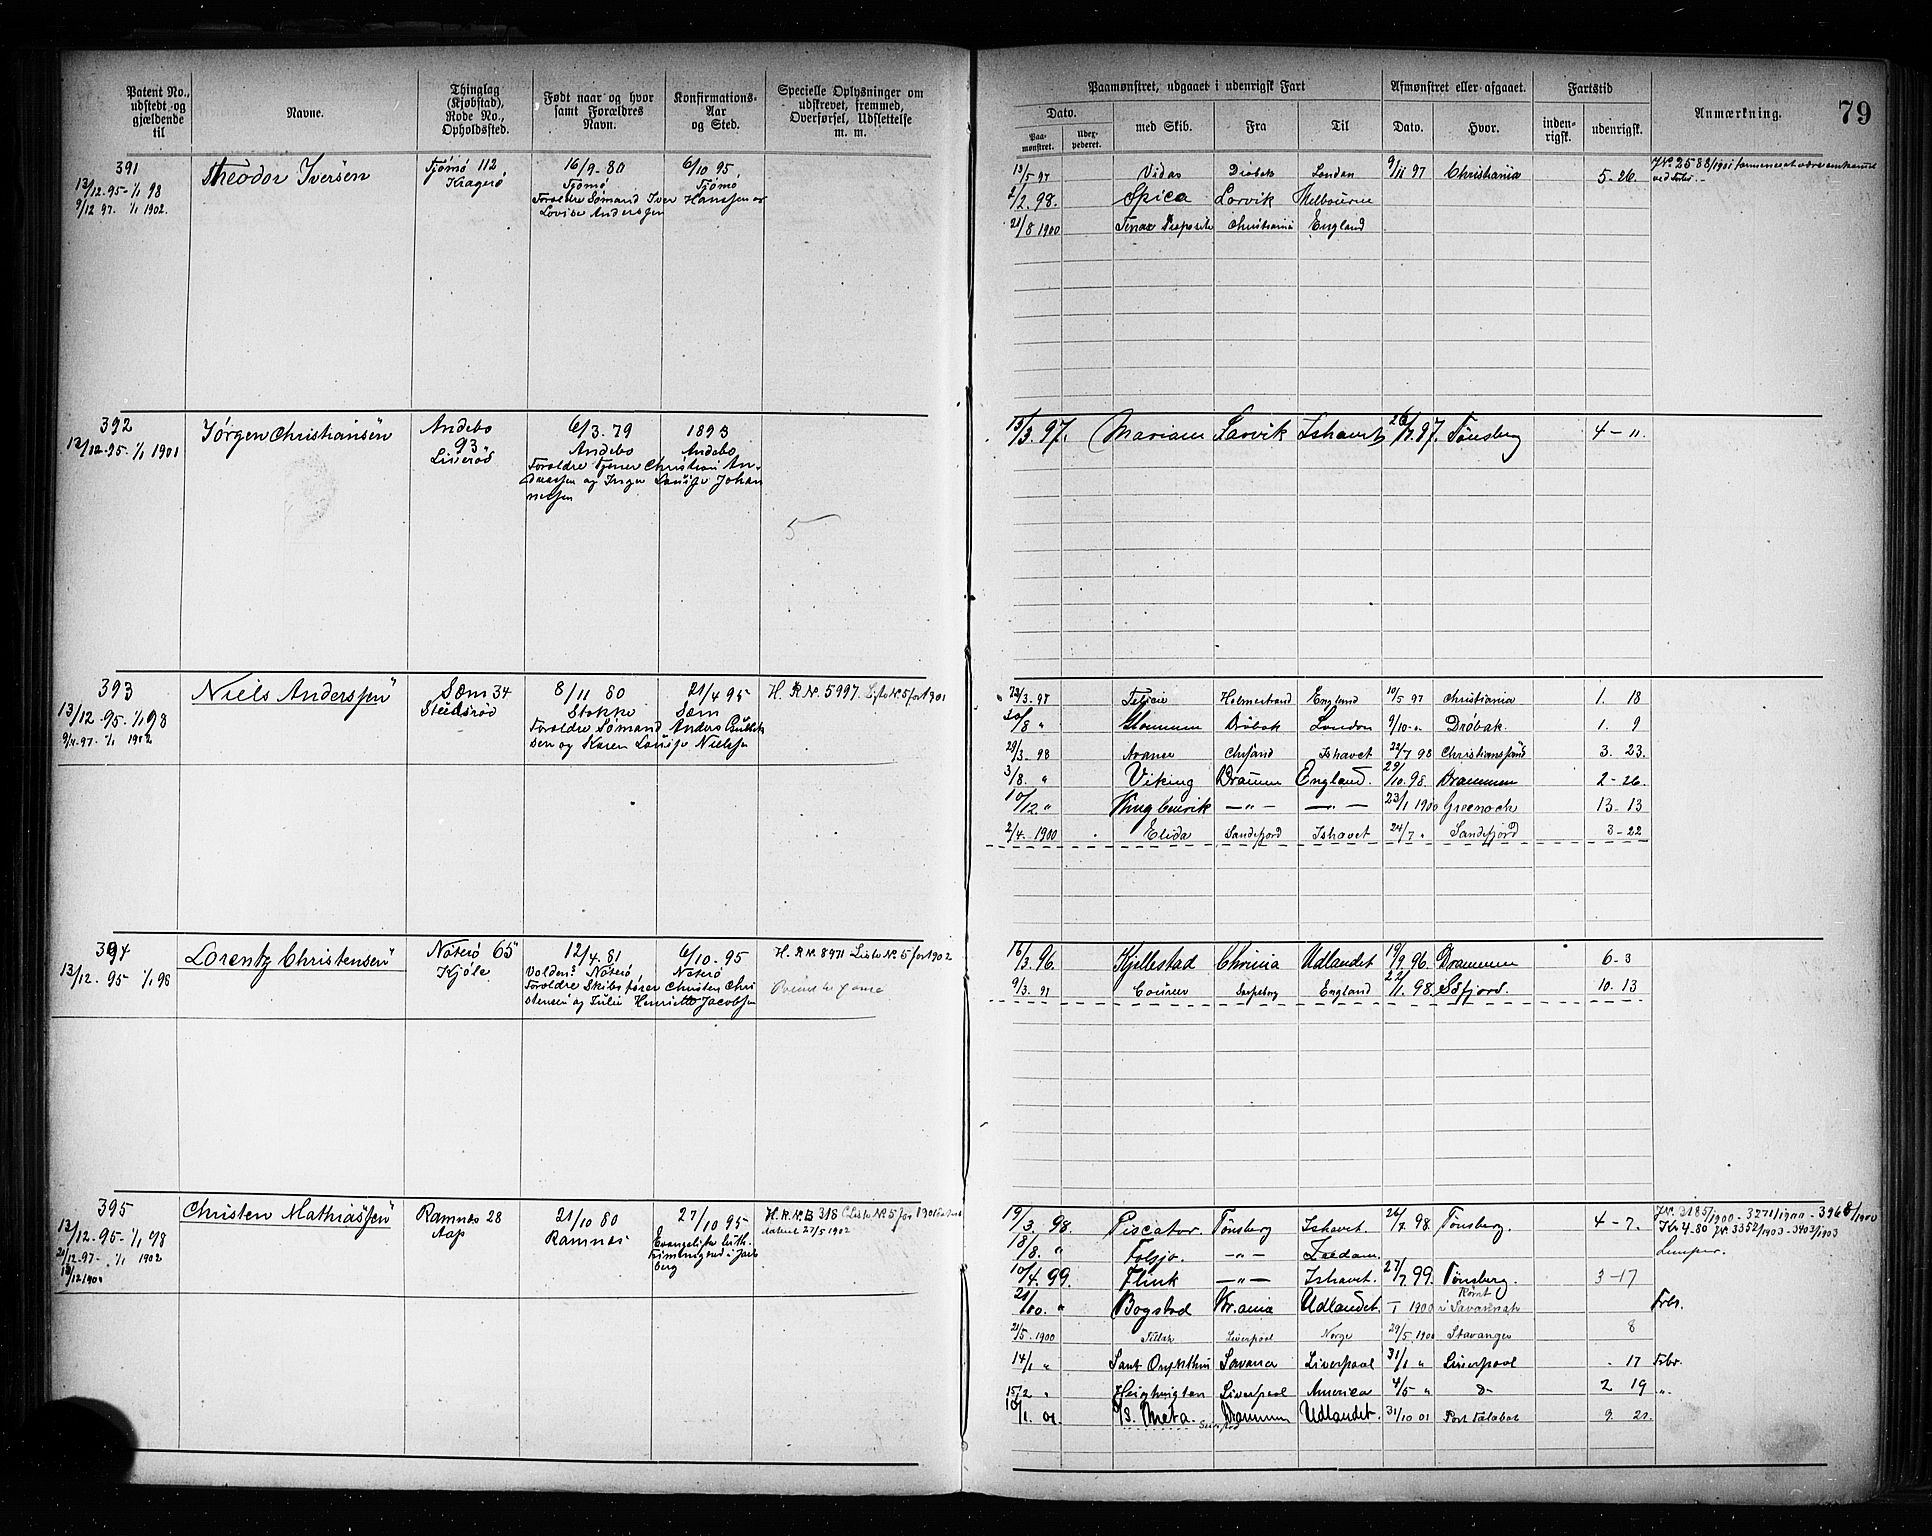 Patent No., udstedt og gjældende til
Navne.
Thinglag (Kjøbstad), Rode No., Opholdssted.
Født naar og hvor samt Forældres Navn.
Konfirmations-Aar og Sted.
Specielle Oplysninger om udskrevet, fremmed, Overførsel, Udslettelse m. m.
Paamønstret, udgaaet i udenrigsk Fart
Dato.
Paa-mønstret.
Udex-pederet.
med Skib.
Fra
Til
Afmønstret eller afgaaet.
Dato.
Hvor.
Fartstid
inden-rigsk.
udenrigsk.
Anmærkning.
79
391
13/12-95-1/1 98
9/12 97. 1/1 1902.
Theodor Iversen
Tjømø 112
Kragerø
16/9-80
Tjømø
Forældre Sømand Iver Hanssen og
Lovise Anderssen
6/10 95
Tjømø
13/5 97 Vidar Drøbak London 9/11 97 Christiania 5-26.
2/2. 98. Spica Larvik Melbourne
21/8 1900 Christiania England
392
13/12-95-1/1 1901
Jørgen Christiansen
Andebo
93
Liverød
6/3. 79
Andebo
Forældre Tjener Christian An-
dreassen og Inger Lovise Johan
nessen
1893
Andebo
5
13/3.97. Mariane Larvik Ishavet 26/7.97. Tønsberg 4 - "
393
13/12-95-1/1 98
Niels Anderssen
Sæm 34
8/11 80
Stokke
Forældre Sømand Anders
sen og Karen Lovise Nielsen
21/4 95
Sæm
H. R. No. 5997. Liste No. 5 for 1901
Holmestrand England 10/5 97 Christiania 1. 18
30/8 " Glommen Drøbak London 9/10 " Drøbak. 1. 9
29/3-98 Chrsand Ishavet 22/7 98 Christianssand 3. 23.
3/8. " Viking Drammen England. 29/10.98. Drammen 2-26.
10/12 " -"- -"- 23/1 1900 Greenock 13-13
2/4. 1900 Elida Sandefjord Ishavet 24/7 " Sandefjord 3-22
394
13/12-95 1/1 98
Lorentz Christensen
Nøterø 65
Kjøle
12/4.81
Volden? Nøterø
Forældre Skibsfører Christen Chri
stensen og Julie Henriette Jacobsen
6/10-95
Nøterø
H. R No. 8971 Liste No. 5 for 1902
16/3.96. Kjellestad Chrania Udlandet 19/9.96. Drammen 6-3
9/3. 97 Courier Sarpsborg England 22/11.98. 10. 13
395
13/12-95-1/1 98
21/12-97- 1/1 1902
Christen Mathiassen
Ramnes 28
Aap
21/10 80
Ramnes
27/10 95
Evangelisk luth.
Frimenighed i Jarls
berg
H. R. No. B 318 Liste No. 5 for 1901
dateret 27/5 1902
19/3. 98. Piscator. Tønsberg Ishavet. 26/7. 98 Tønsberg. 4-7.
18/8. " Folsjø. -"-
10/4.99. Flink -"- Ishavet. 27/7 99. Tønsberg. 3-17
" Bogstad Krania Udlandet. 1900 Rømt i Savannah Frbr.
21/5. 1900 Liverpool Norge 29/5. 1900 Stavanger 8
14/1 " Savana Liverpool 31/1 " Liverpool . 17 Frbr.
15/2 " Liverpool America 4/5 " 2 19 ".
10/1. 01. S/S. Meta. Drammen Udlandet. 31/10 01 Port Talabot 9. 21.
Kr 4.80 No. 3352/1903 - 3403/1903